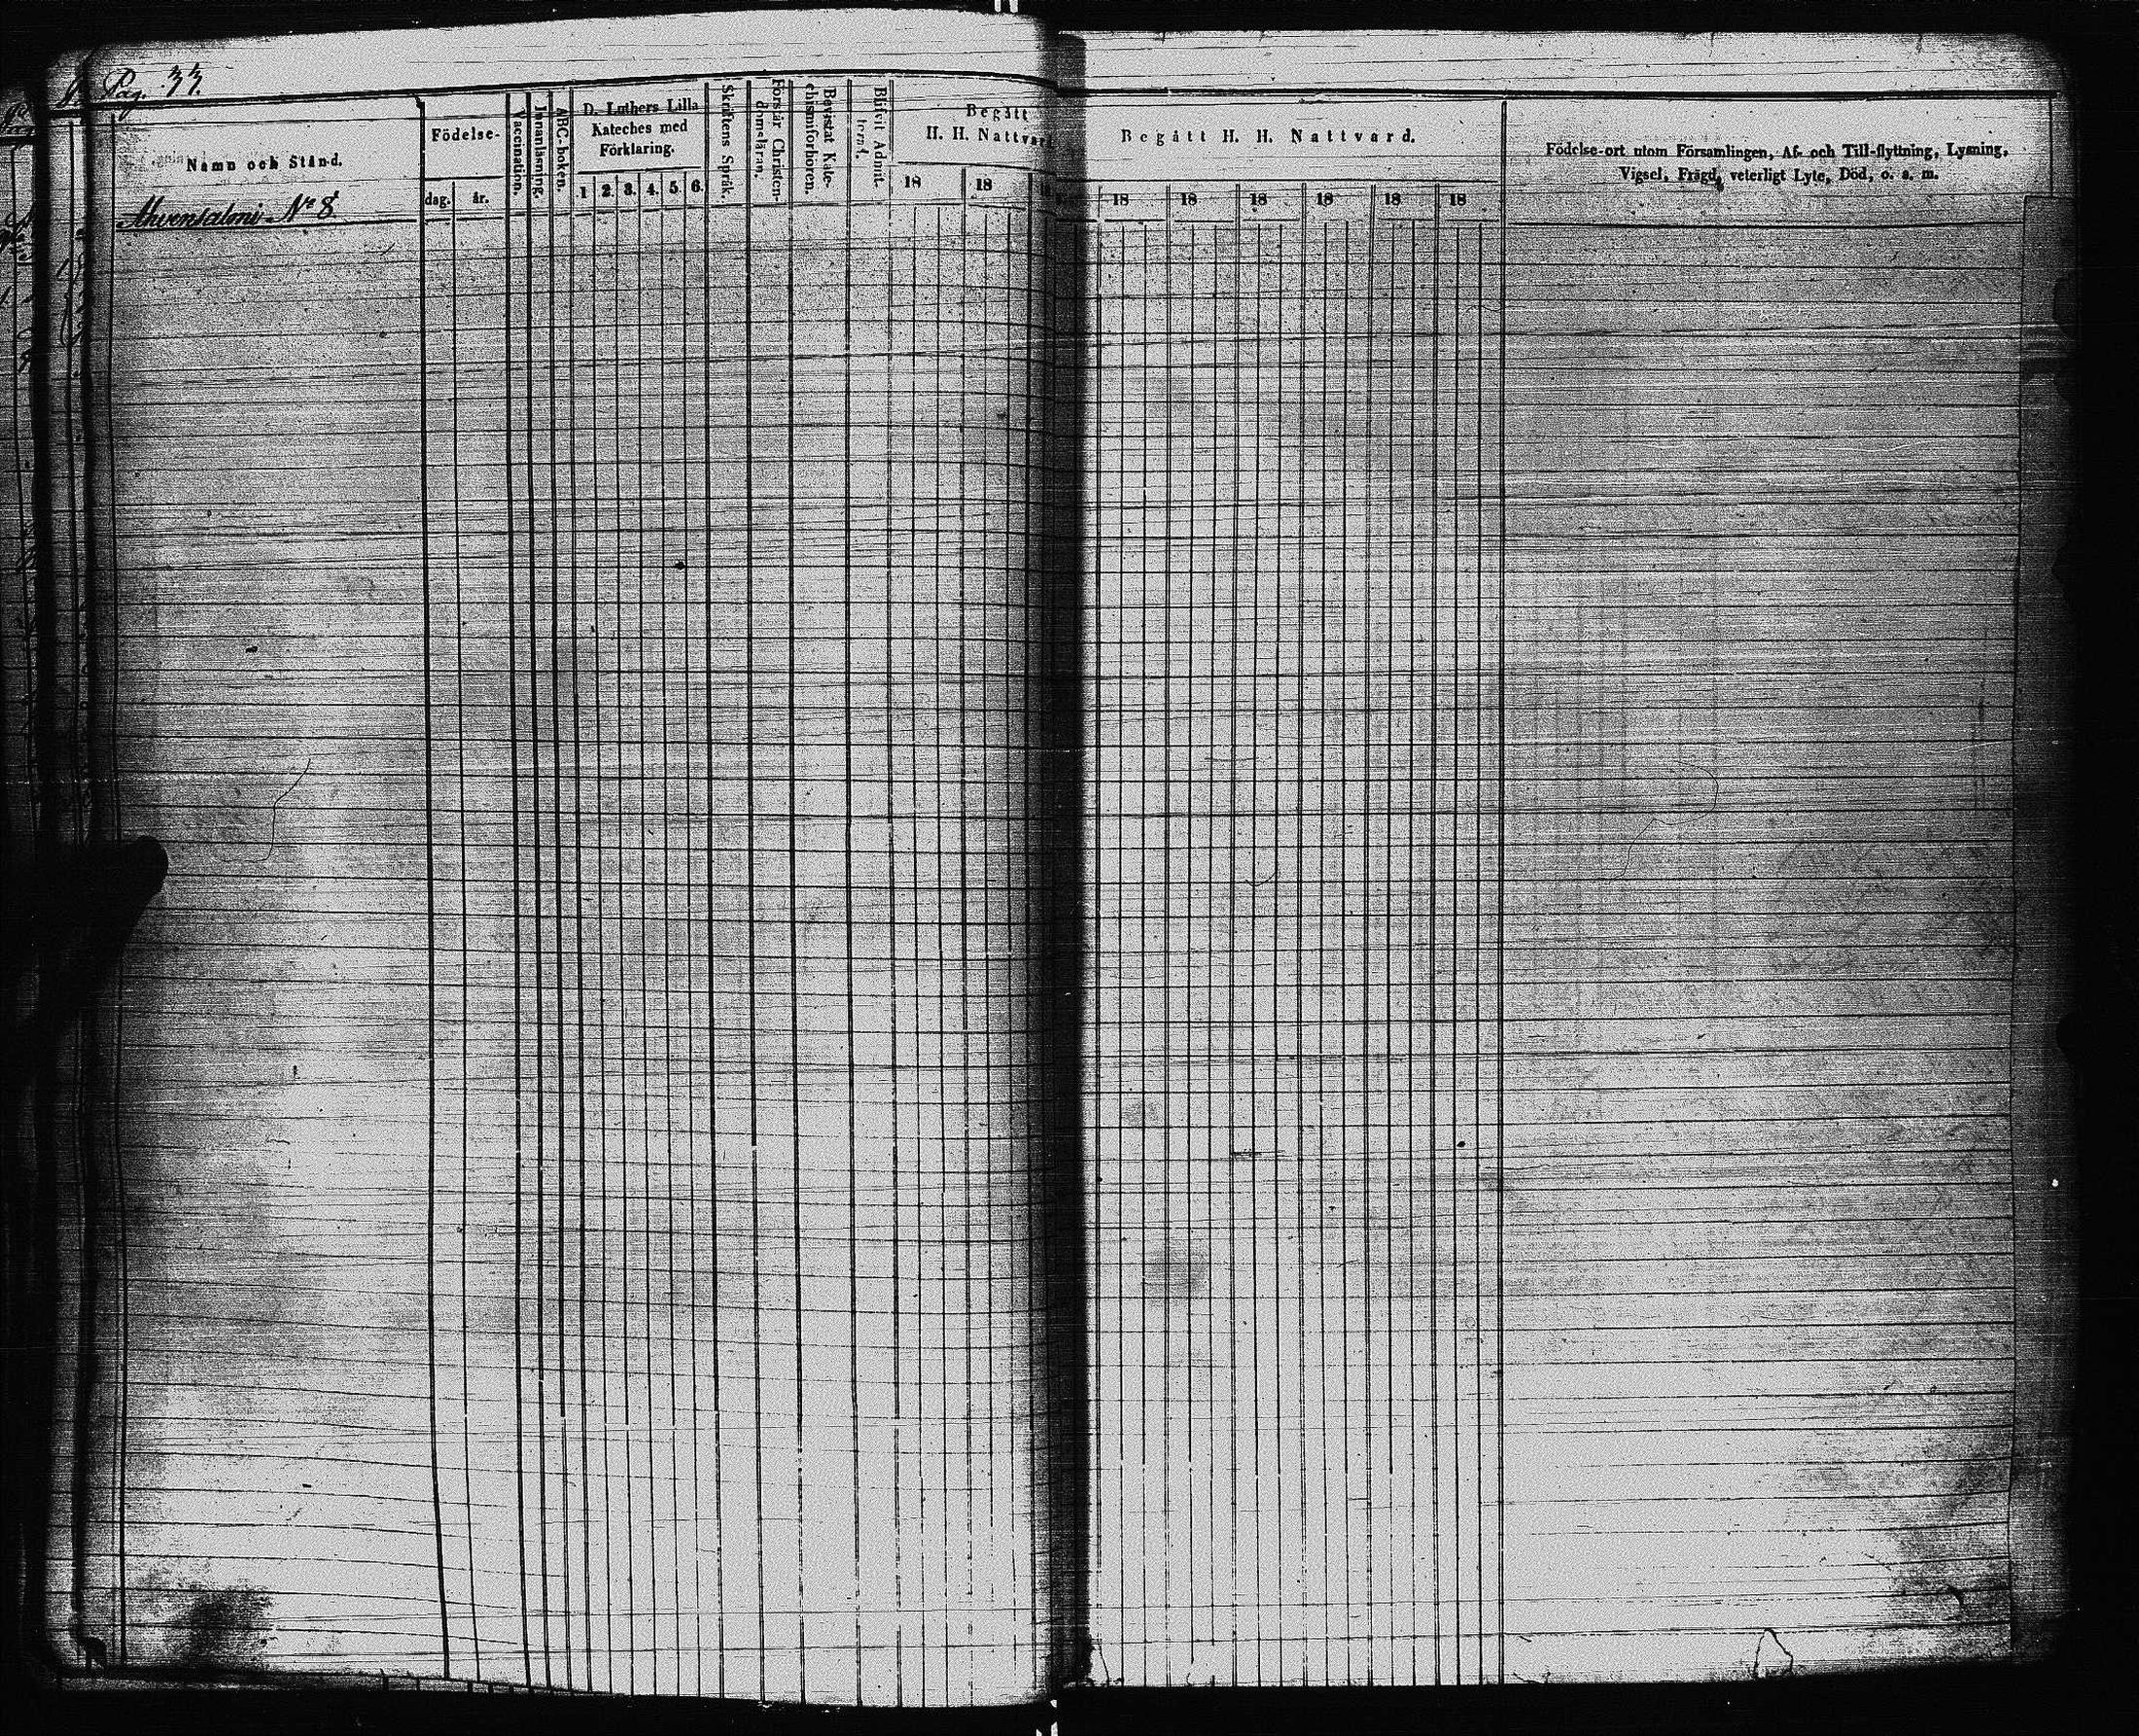 Pag. 33.
Namn och Stånd.
Födelse-
dag.
år.
Vaccination.
Innanläsning.
ABC-boken.
D. Luthers Lilla
Kateches med
Förklaring.
1 2. 3. 4. 5. 6.
Skriftens Språk.
Förstår Christen-
domsläran.
Bevistat Kate-
chismiförhören.
Blifvit Admit-
terad.
Begått
H. H. Nattvard
18 18
Ahvensalmi No 8
Begått H. H. Nattvard.
18 18 18 18 18 18
Födelse-ort utom Församlingen, Af- och Till-flyttning, Lysning,
Vigsel, Frägd, veterligt Lyte, Död, o. s. m.